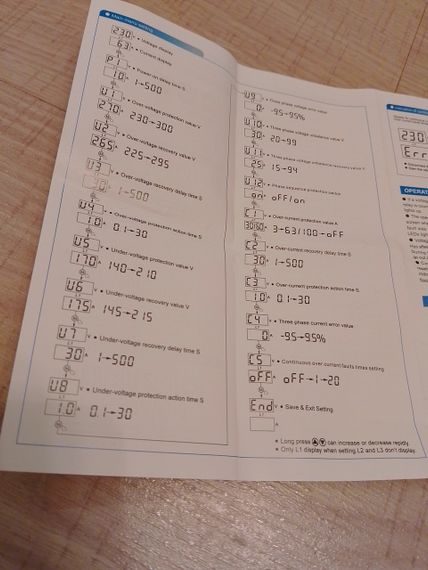 Main menu setting
230 V • Voltage display
63 A • Current display
P1 • Power-on delay time S
10 1→500
U1 • Over-voltage protection value V
270 230→300
U2 • Over-voltage recovery value V
265 225→295
U3 • Over-voltage recovery delay time S
30 1→500
U4 • Over-voltage protection action time S
1.0 0.1→30
U5 • Under-voltage protection value V
170 140→210
U6 • Under-voltage recovery value V
175 145→215
U7 • Under-voltage recovery delay time S
30 1→500
U8 • Under-voltage protection action time S
1.0 0.1→30
U9 • Three phase voltage error value
0 -95→95%
U10 • Three phase voltage unbalance value V
30 20→99
U11 • Three phase voltage unbalance recovery value V
25 15→94
U12 • Phase sequence protection switch
on oFF/on
C1 • Over-current protection value A
3→63/100→oFF
C2 • Over-current recovery delay time S
30 1→500
C3 • Over-current protection action time S
1.0 0.1→30
C4 • Three phase current error value
0 -95→95%
C5 • Continuous over current faults times setting
oFF oFF→1→20
End • Save & Exit Setting
• Long press can increase or decrease repidly.
• Only L1 display when setting,L2 and L3 don't display.
230
Err
OPERAT